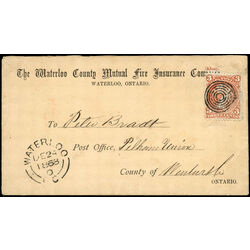 The Waterloo County Mutual Fire Insurance Comp
WATERLOO, ONTARIO.
To Peter Bradt
Post Office, Pelham Union
County of
ONTARIO.
WATERLOO
DE 24
1868